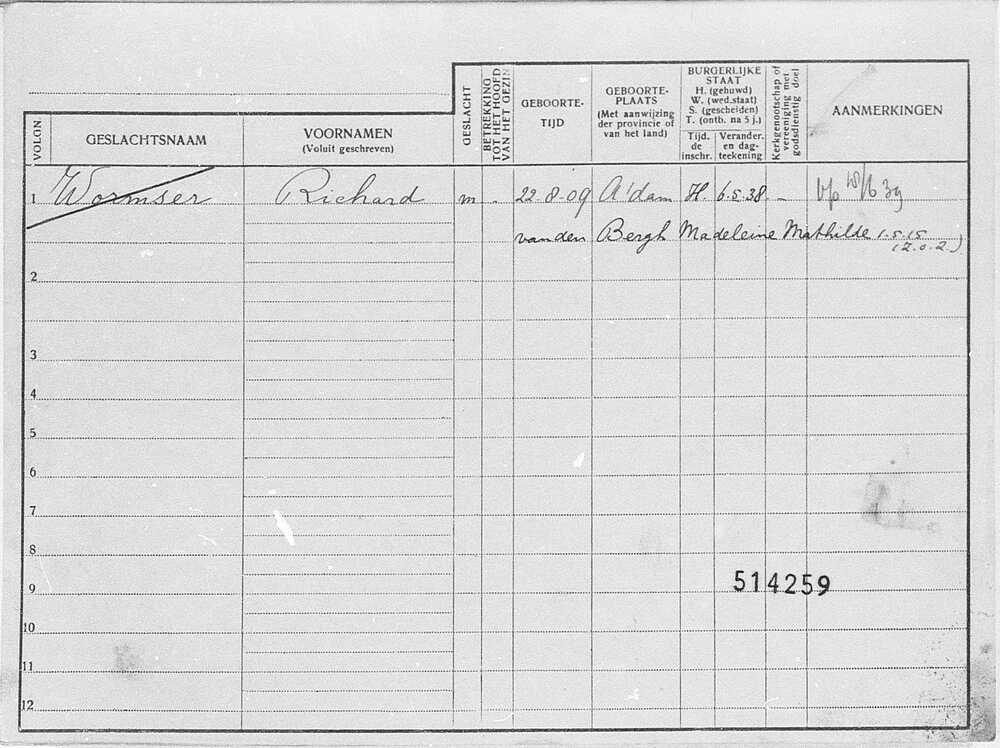 VOLGN
GESLACHTSNAAM
VOORNAMEN
(Voluit geschreven)
GESLACHT
BETREKKING
TOT HET HOOFD
VAN HET GEZIN
GEBOORTE-
TIJD
GEBOORTE-
PLAATS
(Met aanwijzing
der provincie of
van het land)
BURGERLIJKE
STAAT
H. (gehuwd)
W. (wed.staat)
S. (gescheiden)
T. (ontb. na 5 j.)
Tijd.
de
inschr.
Verander.
en dag-
teekening
Kerkgenootschap of
vereeniging met
godsdienstig doel
AANMERKINGEN
1 Wormser Richard m - 22-8-09 A'dam H. 6-5-38 -
van den Bergh Madeleine Mathilde 1-5-15
(Z.O.Z.)
2
3
4
5
6
7
8
9
514259
10
11
12